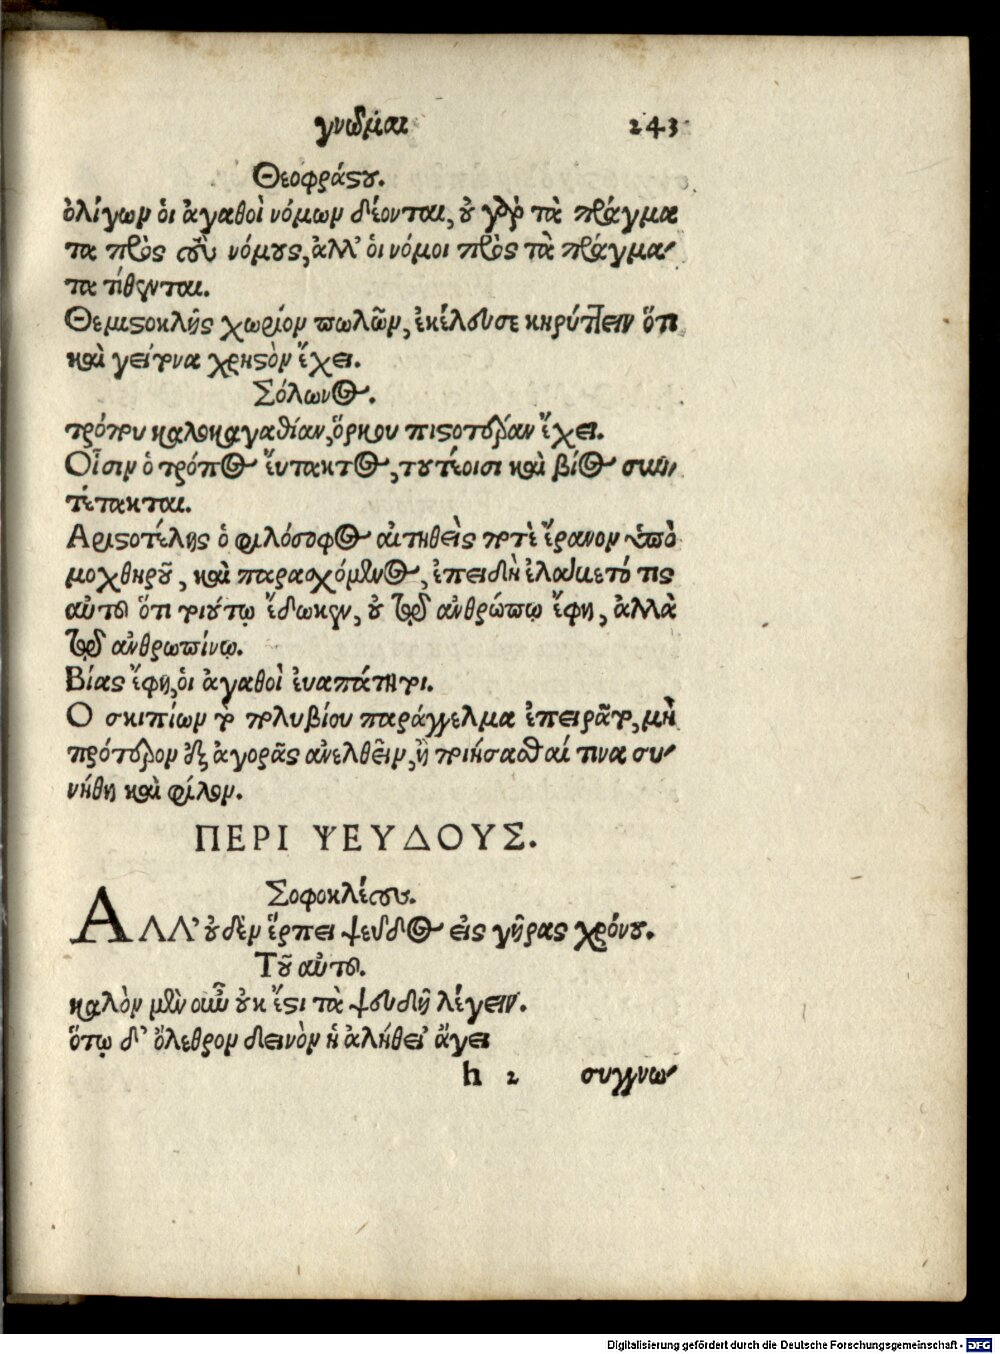 γνῶμαι 243
Θεοφράστου.
ὀλίγων οἱ ἀγαθοὶ νόμων δέονται, οὐ γὰρ τὰ πράγμα
τα πρὸς τοὺς νόμους, ἀλλ' οἱ νόμοι πρὸς τὰ πράγμα-
τα τίθενται.
Θεμιστοκλῆς χωρίον πωλῶν, ἐκέλευσε κηρύττειν ὅτι
καὶ γείτονα χρηστὸν ἔχει.
Σόλωνος.
τρόπου καλοκαγαθίαν, ὅρκου πιστοτέραν ἔχει.
Οἷσιν ὁ τρόπος εὔτακτος, τουτέοισι καὶ βίος συν-
τέτακται.
Αριστοτέλης ὁ φιλόσοφος αἰτηθεὶς ποτὲ ἔρανον ὑπὸ
μοχθηροῦ, καὶ παρασχόμενος, ἐπειδὴ ἐλοιδρεῖτό τις
αὐτῷ ὅτι τοιούτῳ ἔδωκεν, οὐ τῷ ἀνθρώπῳ ἔφη, ἀλλὰ
τῷ ἀνθρωπίνῳ.
Βίας ἔφη, οἱ ἀγαθοὶ εὐαπάτητοι.
Ο σκιπίων τὸ πολυβίου παράγγελμα ἐπειρᾶτο, μὴ
πρότερον ἐξ ἀγορᾶς ἀνελθεῖν, ἢ ποιήσασθαί τινα συ-
νήθη καὶ φίλον.
ΠΕΡΙ ΨΕΥΔΟΥΣ.
Σοφοκλέους.
ΑΛΛ' οὐδὲν ἕρπει ψεῦδος εἰς γῆρας χρόνου.
Τοῦ αὐτοῦ.
καλὸν μὲν οὖν οὐκ ἔστι τὰ ψευδῆ λέγειν.
ὅτῳ δ' ὄλεθρον δεινὸν ἡ ἀλήθει' ἄγει
h 2 συγγνω-
Digitalisierung gefördert durch die Deutsche Forschungsgemeinschaft - DFG